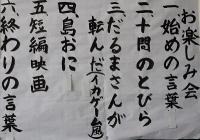 お楽しみ会
一、始めの言葉
二、十問のとびら
三、だるまさんが
転んだ(イカゲーム風)
四、島おに
五、短編映画
六、終わりの言葉